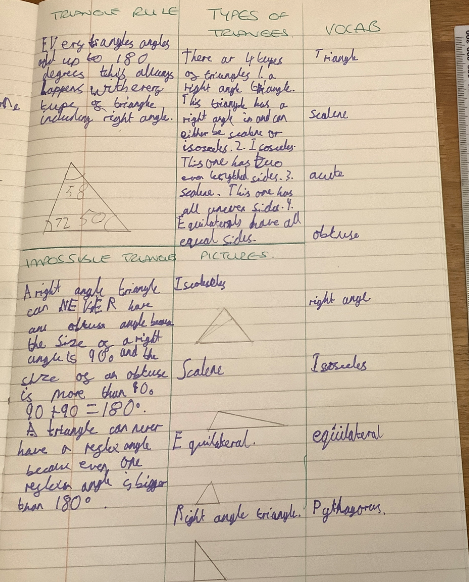 TRIANGLE RULE
Every triangles angles
add up to 180
degrees this always
happens with every
type of triangle
including right angle.
58
72 50
TYPES OF
TRIANGLES
There ar 4 types
of triangles 1. a
right angle triangle.
This triangle has a
right angle in and can
either be scalene or
isosceles. 2. Isosceles.
This one has two
even lengthd sides. 3.
scalene. This one has
all uneven sides. 4.
Equilaterals have all
equal sides.
VOCAB
Triangle
scalene
acute
obtuse
right angle
Isosceles
equilateral
Pythagorus.
IMPOSSIBLE TRIANGLES
A right angle triangle
can NEVER have
an obtuse angle becaus
the size of a right
angle is 90° and the
size of an obtuse
is more than 90.
90 + 90 = 180°.
A triangle can never
have a reflex angle
because even one
reflex angle is bigger
than 180°.
PICTURES.
Isosceles
Scalene
Equilateral.
Right angle triangle.